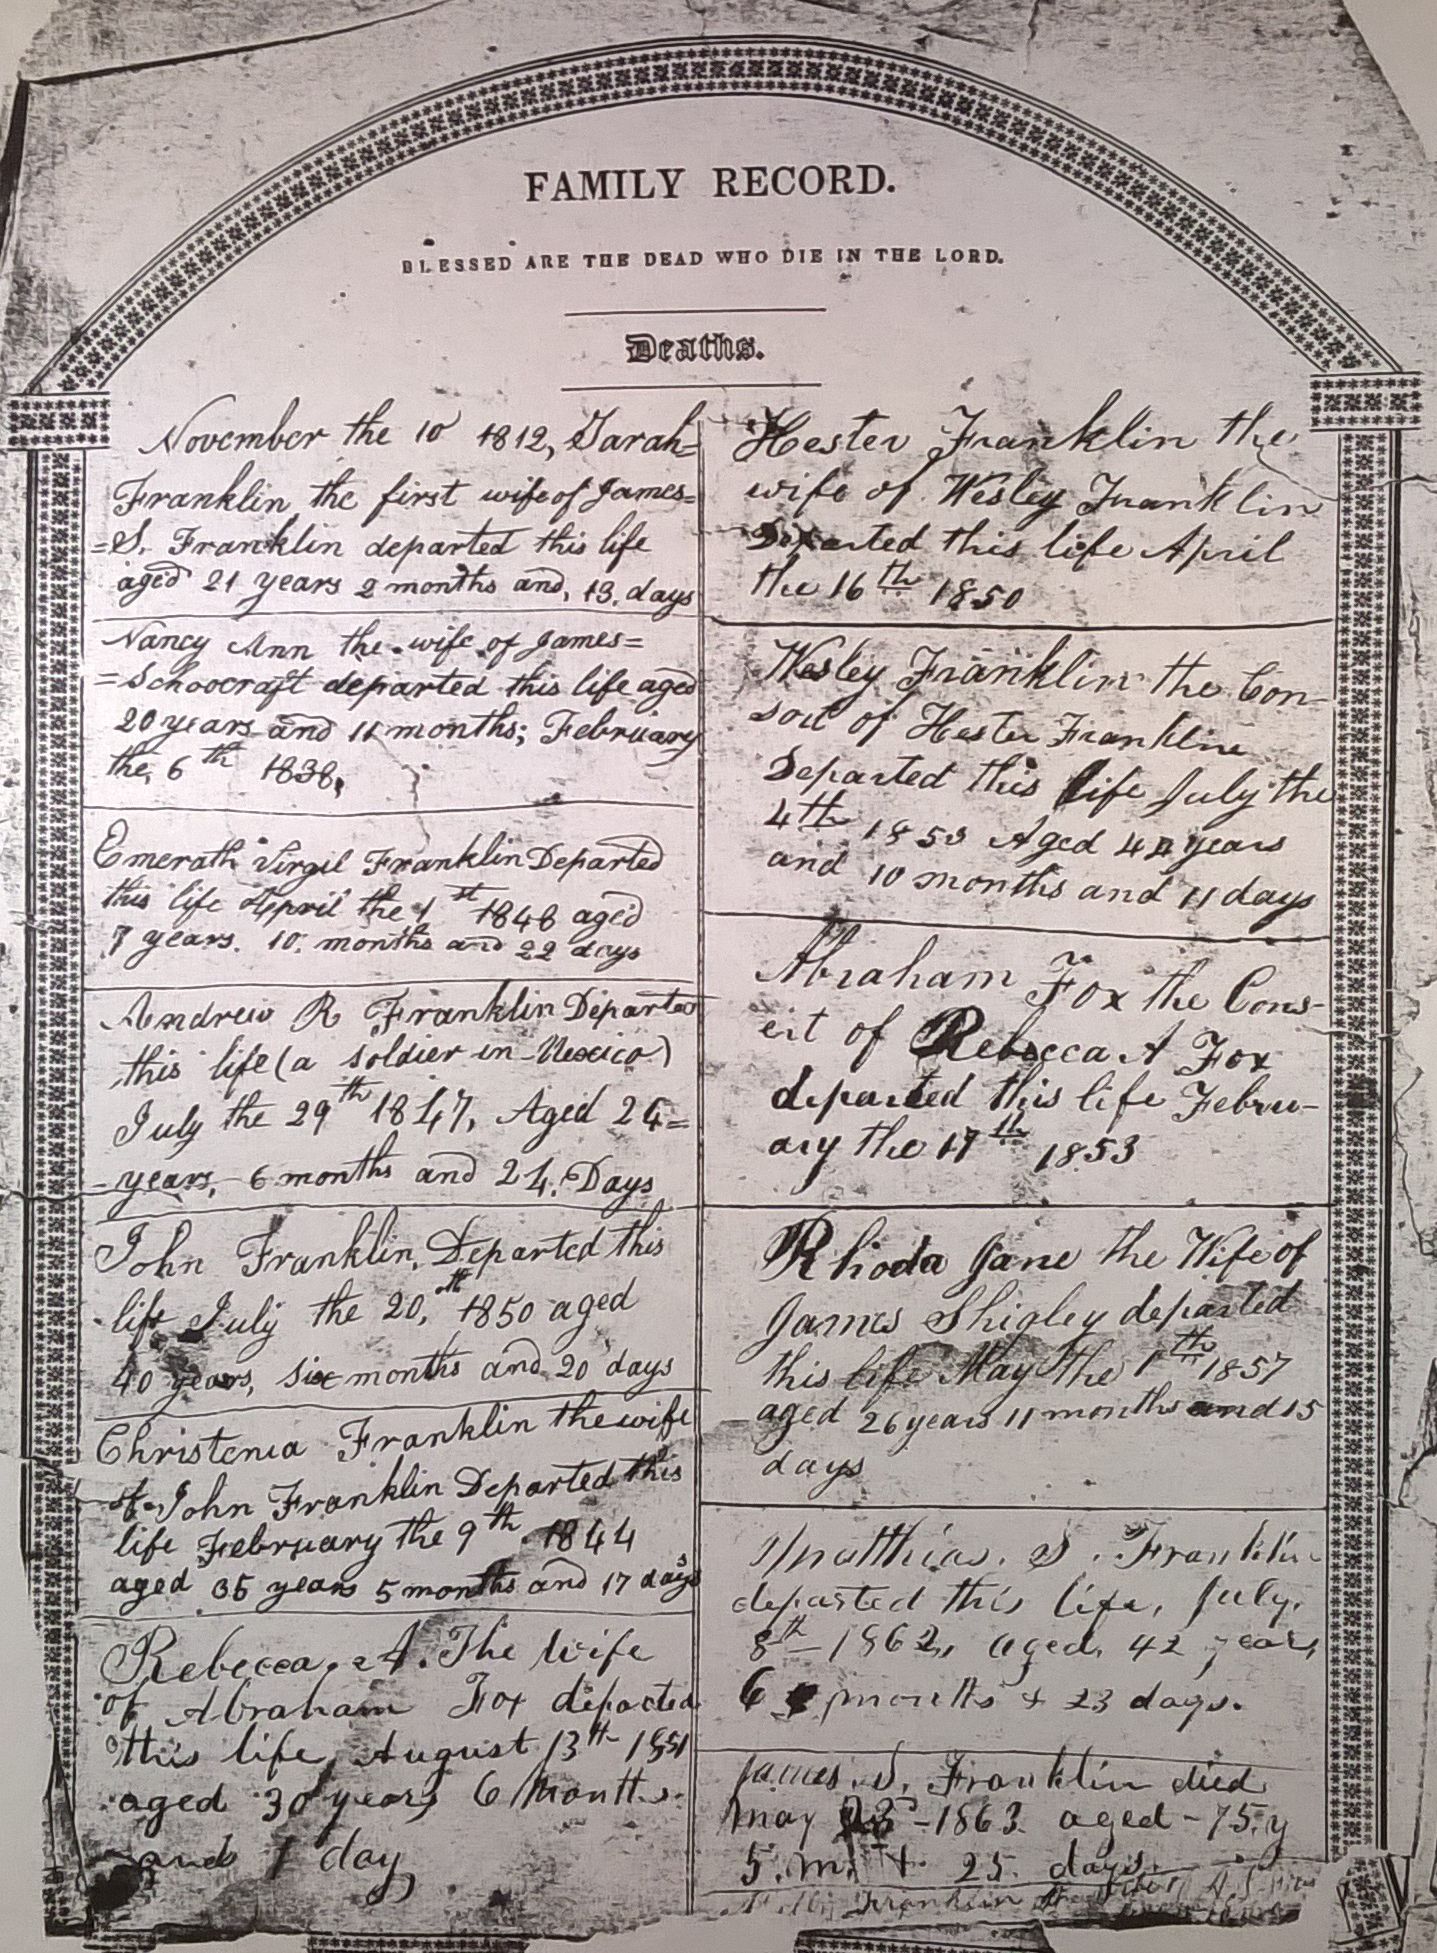 FAMILY RECORD.
BLESSED ARE THE DEAD WHO DIE IN THE LORD.
Deaths.
November the 10 1812, Sarah=
Franklin the first wife of James=
=S. Franklin departed this life
aged 21 years 2 months and, 13, days
Nancy Ann the wife of James=
=Schoocraft departed this life aged
20 years and 11 months; February
the, 6th 1838,
Emerath Virgil Franklin Departed
this life April the 1st 1848 aged
7 years. 10. months and 22 days
Andrew R Franklin Departed
this life (a soldier in Mexico)
July the 29th 1847, Aged 24=
years, 6 months and 24, Days
John Franklin, Departed this
life July the 20,th 1850 aged
40 years, six months and 20 days
Christenia Franklin the wife
of John Franklin Departed this
life February the 9th 1844
aged 35 years 5 months and 17 days
Rebecca A. The wife
of Abraham Fox departed
this life August 13th 1851
aged 30 years 6 Months
and 1 day
Hester Franklin the
wife of Wesley Franklin
Departed this life April
the 16th 1850
Wesley Franklin the Con-
sort of Hester Franklin
Departed this life July the
4th 1853 Aged years
and 10 months and 11 days
Abraham Fox the Cons-
ort of Rebecca A Fox
departed this life Febru-
ary the 17th 1853
Rhoda Jane the Wife of
James Shigley departed
this life May the 1th 1857
aged 26 years 11 months and 15
days
Matthias. S. Franklin
departed this life, July,
8th 1862, aged, 42 years,
6 months + 23 days.
James. S. Franklin died
may 1863 aged - 75. y
5. m. + 25. days.
Franklin